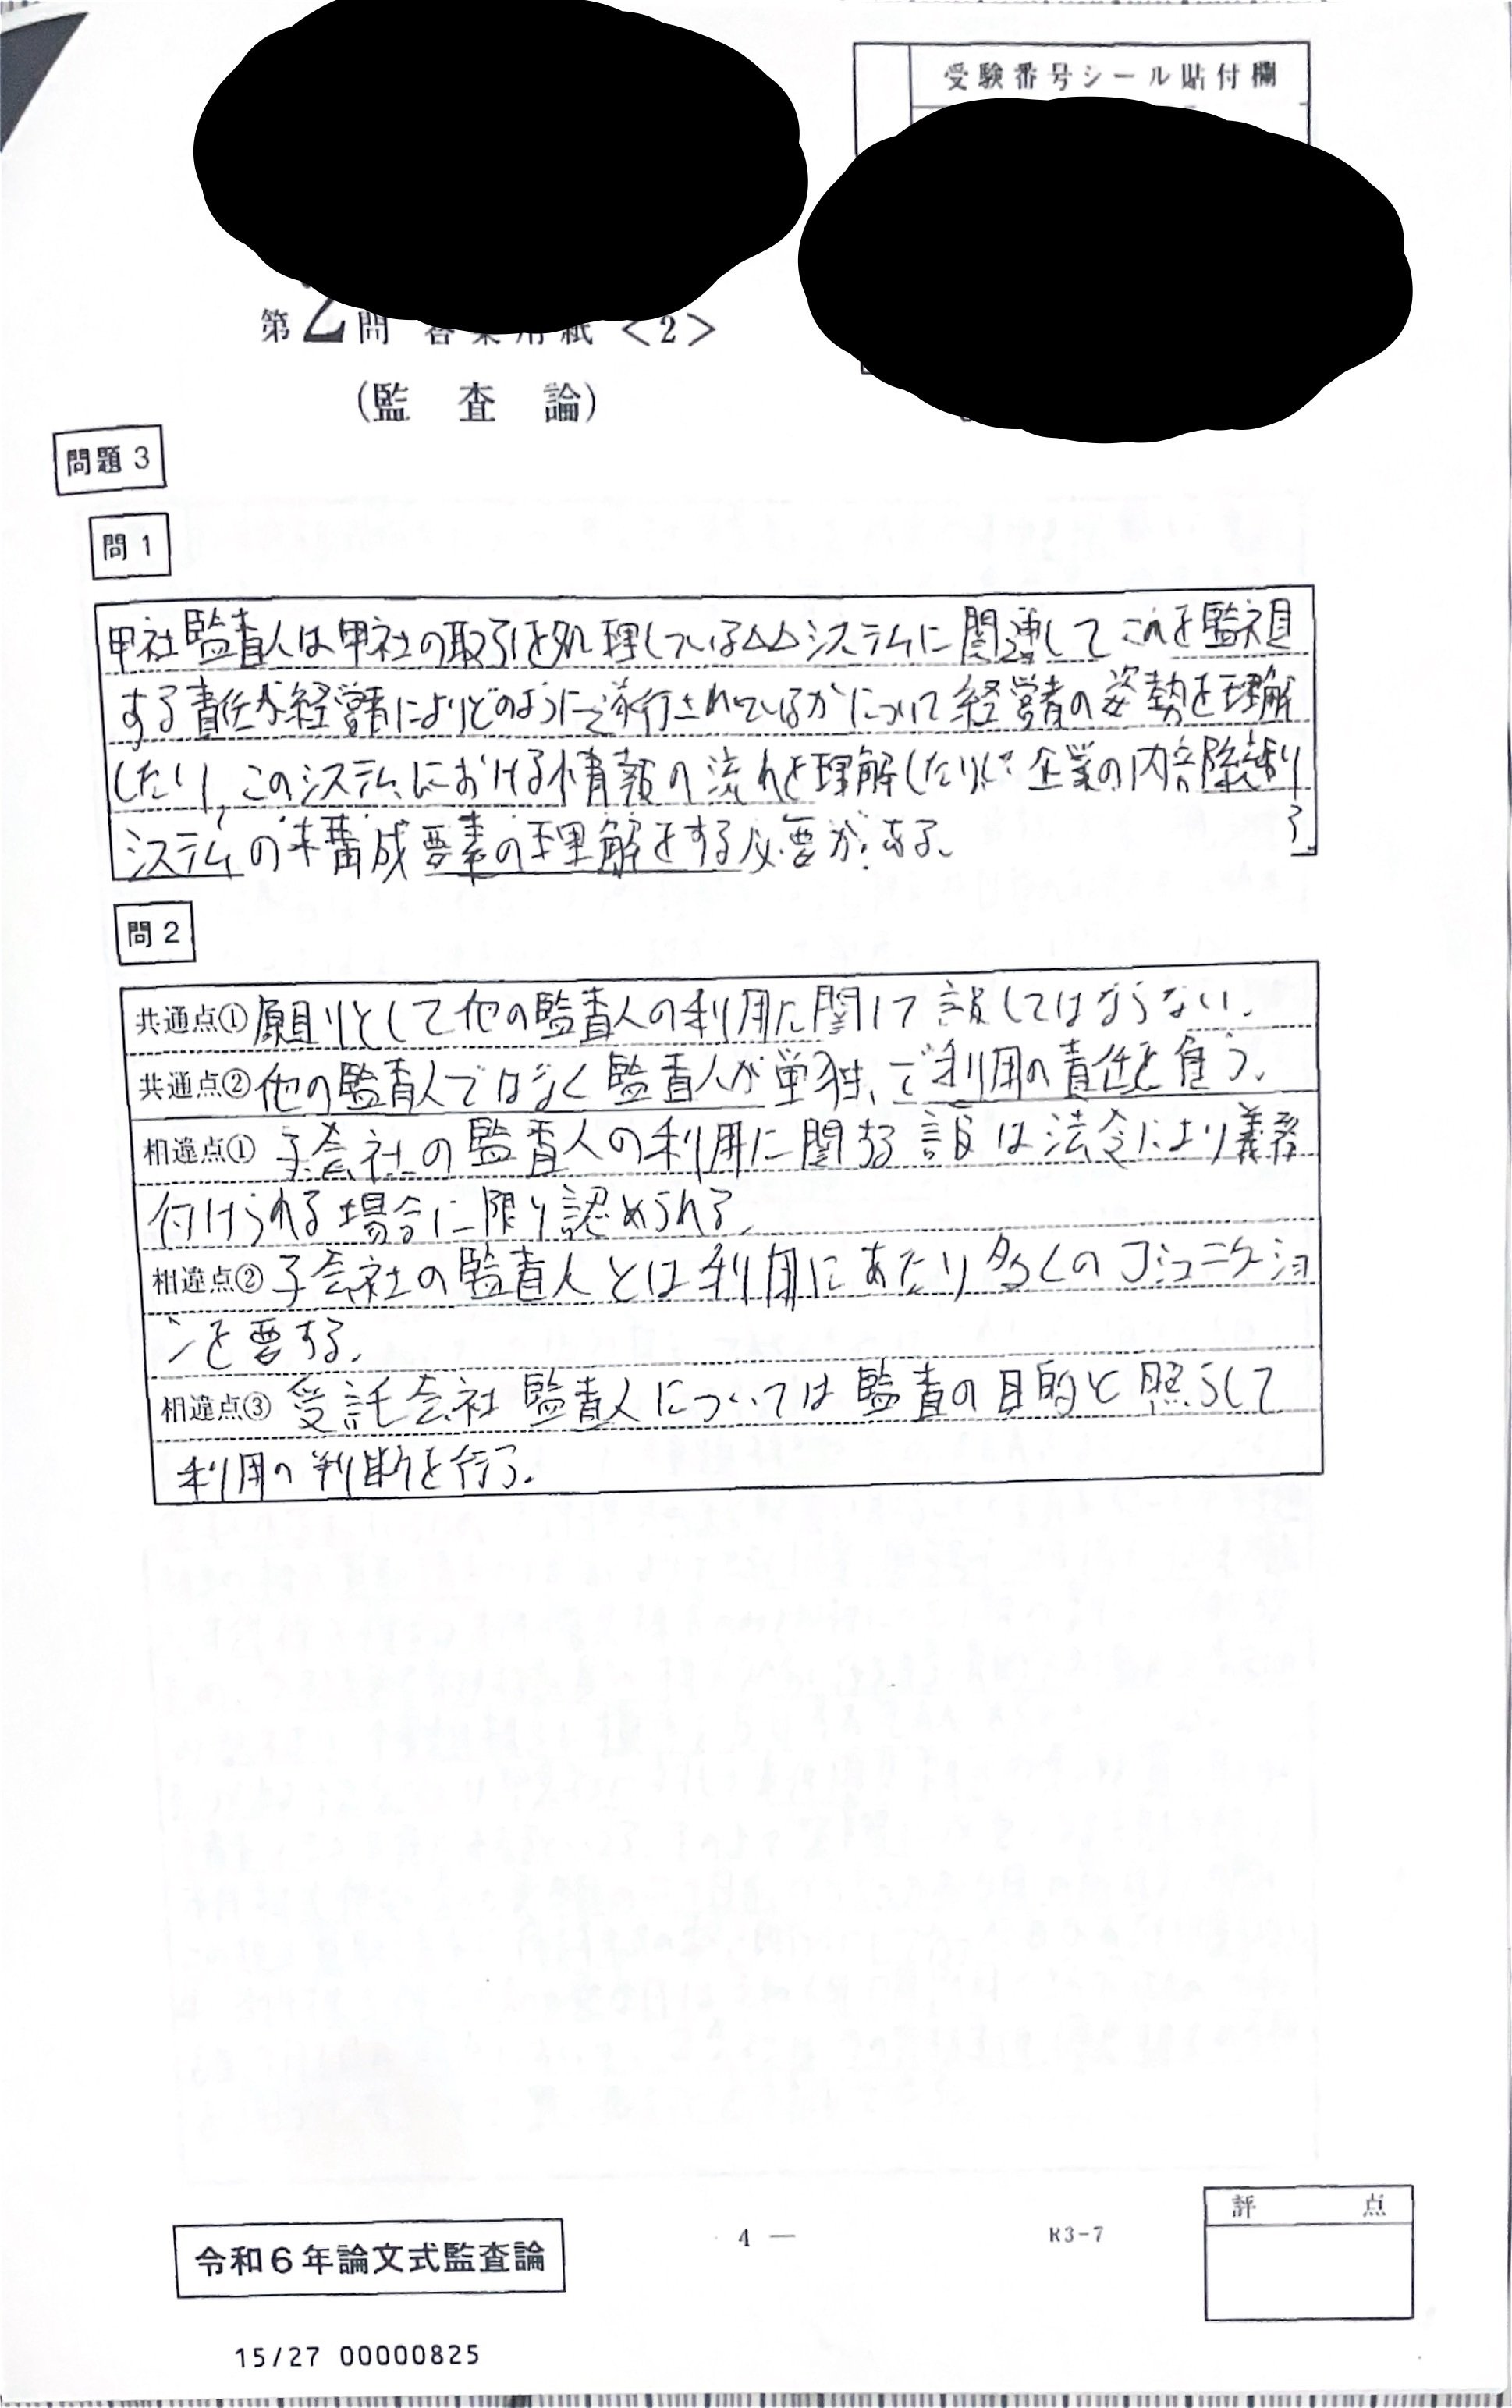 受験番号シール貼付欄
第2問 答案用紙<2>
(監査論)
問題3
問1
甲社監査人は甲社の取引を処理している△△システムに関連してこれを監視
する責任が経営者によりどのように遂行されているかについて経営者の姿勢を理解
したり、このシステムにおける情報の流れを理解したりして企業の内部統制
システムの構成要素の理解をする必要がある。
問2
共通点① 原則として他の監査人の利用に関して言及してはならない。
共通点② 他の監査人ではなく監査人が単独で利用の責任を負う。
相違点① 子会社の監査人の利用に関する言及は法令により義務
付けられる場合に限り認められる。
相違点② 子会社の監査人とは利用にあたり多くのコミュニケーショ
ンを要する。
相違点③ 受託会社監査人については監査の目的と照らして
利用の判断を行う。
4 —
R3-7
評点
令和6年論文式監査論
15/27 00000825